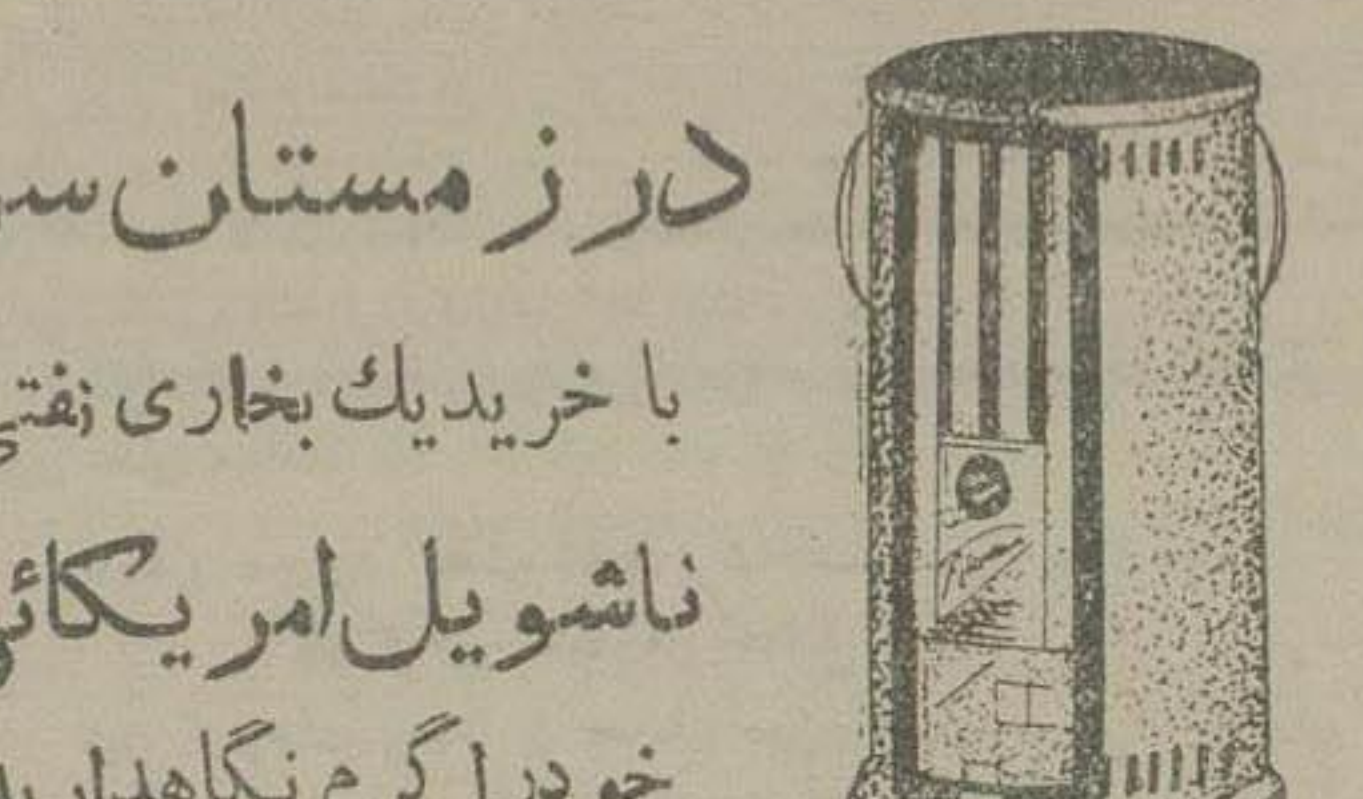 در زمستان
با خرید یك بخاری نفتی
ناشویل امریکائی
خود را گرم نگاهدارید